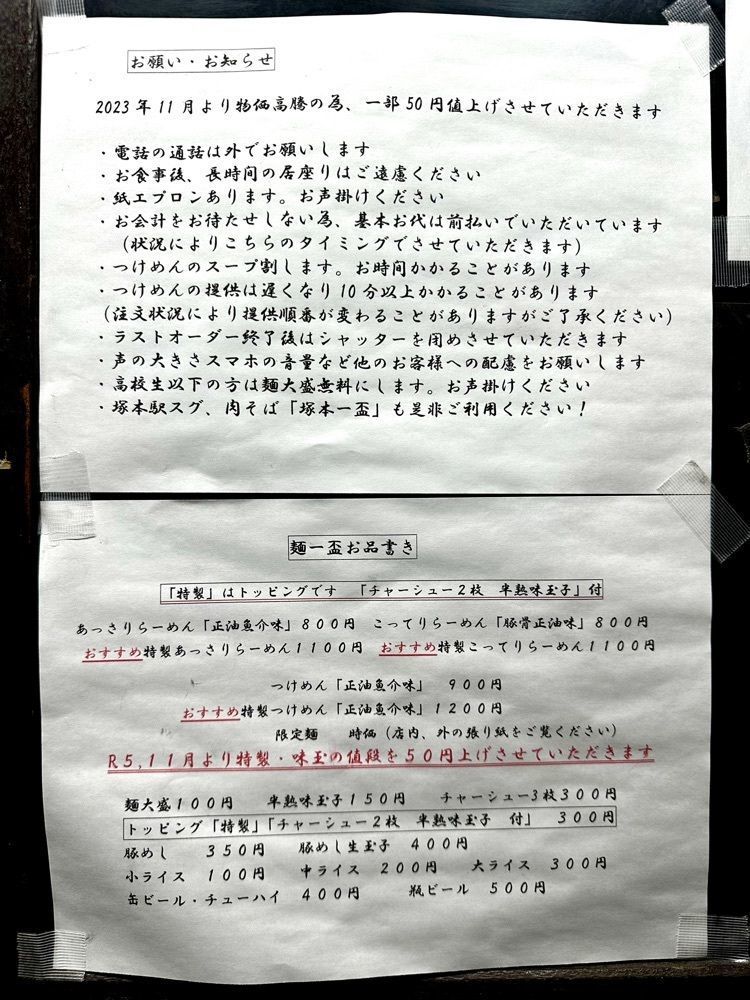 お願い・お知らせ
2023年11月より物価高騰の為、一部50円値上げさせていただきます
・電話の通話は外でお願いします
・お食事後、長時間の居座りはご遠慮ください
・紙エプロンあります。お声掛けください
・お会計をお待たせしない為、基本お代は前払いでいただいています
（状況によりこちらのタイミングでさせていただきます）
・つけめんのスープ割します。お時間かかることがあります
・つけめんの提供は遅くなり10分以上かかることがあります
（注文状況により提供順番が変わることがありますがご了承ください）
・ラストオーダー終了後はシャッターを閉めさせていただきます
・声の大きさスマホの音量など他のお客様への配慮をお願いします
・高校生以下の方は麺大盛無料にします。お声掛けください
・塚本駅スグ、肉そば「塚本一盃」も是非ご利用ください！
麺一盃お品書き
「特製」はトッピングです　「チャーシュー２枚　半熟味玉子」付
あっさりらーめん「正油魚介味」８００円　こってりらーめん「豚骨正油味」８００円
おすすめ特製あっさりらーめん１１００円　おすすめ特製こってりらーめん１１００円
つけめん「正油魚介味」　９００円
おすすめ特製つけめん「正油魚介味」１２００円
限定麺　　時価（店内、外の張り紙をご覧ください）
Ｒ５,１１月より特製・味玉の値段を５０円上げさせていただきます
麺大盛１００円　　半熟味玉子１５０円　　チャーシュー3枚３００円
トッピング「特製」「チャーシュー２枚　半熟味玉子　付」　３００円
豚めし　　３５０円　　豚めし生玉子　４００円
小ライス　１００円　　中ライス　２００円　　大ライス　３００円
缶ビール・チューハイ　４００円　　瓶ビール　５００円